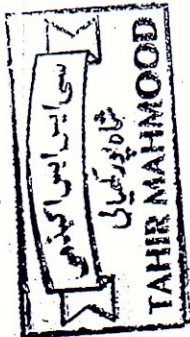 سی ایس ایس اکیڈمی
شاہ پور کمیالی
TAHIR MAHMOOD